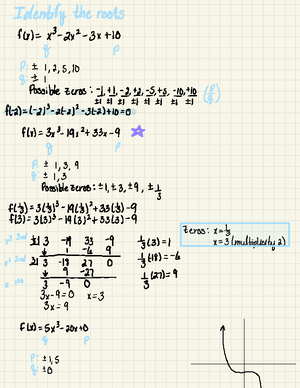 Identify the roots
f(x) = x³-2x²-3x+10
q p
p: ± 1, 2, 5, 10
q: ± 1
Possible zeros: -1,+1, -2,+2, -5,+5, -10,+10 (p/q)
±1 ±1 ±1 ±1
f(-2)=(-2)³-2(-2)²-3(-2)+10=0
f(x) = 3x³-19x²+33x-9
q p
p: ± 1, 3, 9
q: ± 1, 3
Possible zeros: ±1, ±3, ±9, ±1/3
f(1/3)=3(1/3)³-19(1/3)²+33(1/3)-9
f(3)=3(3)³-19(3)²+33(3)-9
Zeros: x=1/3
x=3 (multiplicity 2)
1/3| 3 -19 33 -9
↓ 1 -6 9
3| 3 -18 27 0
↓ 9 -27
3 -9 0
1/3(3)=1
1/3(18)=-6
1/3(27)=9
3x-9=0 x=3
3x=9
f(x)=5x³-20x+0
q p
p: ±1,5
q: ±0